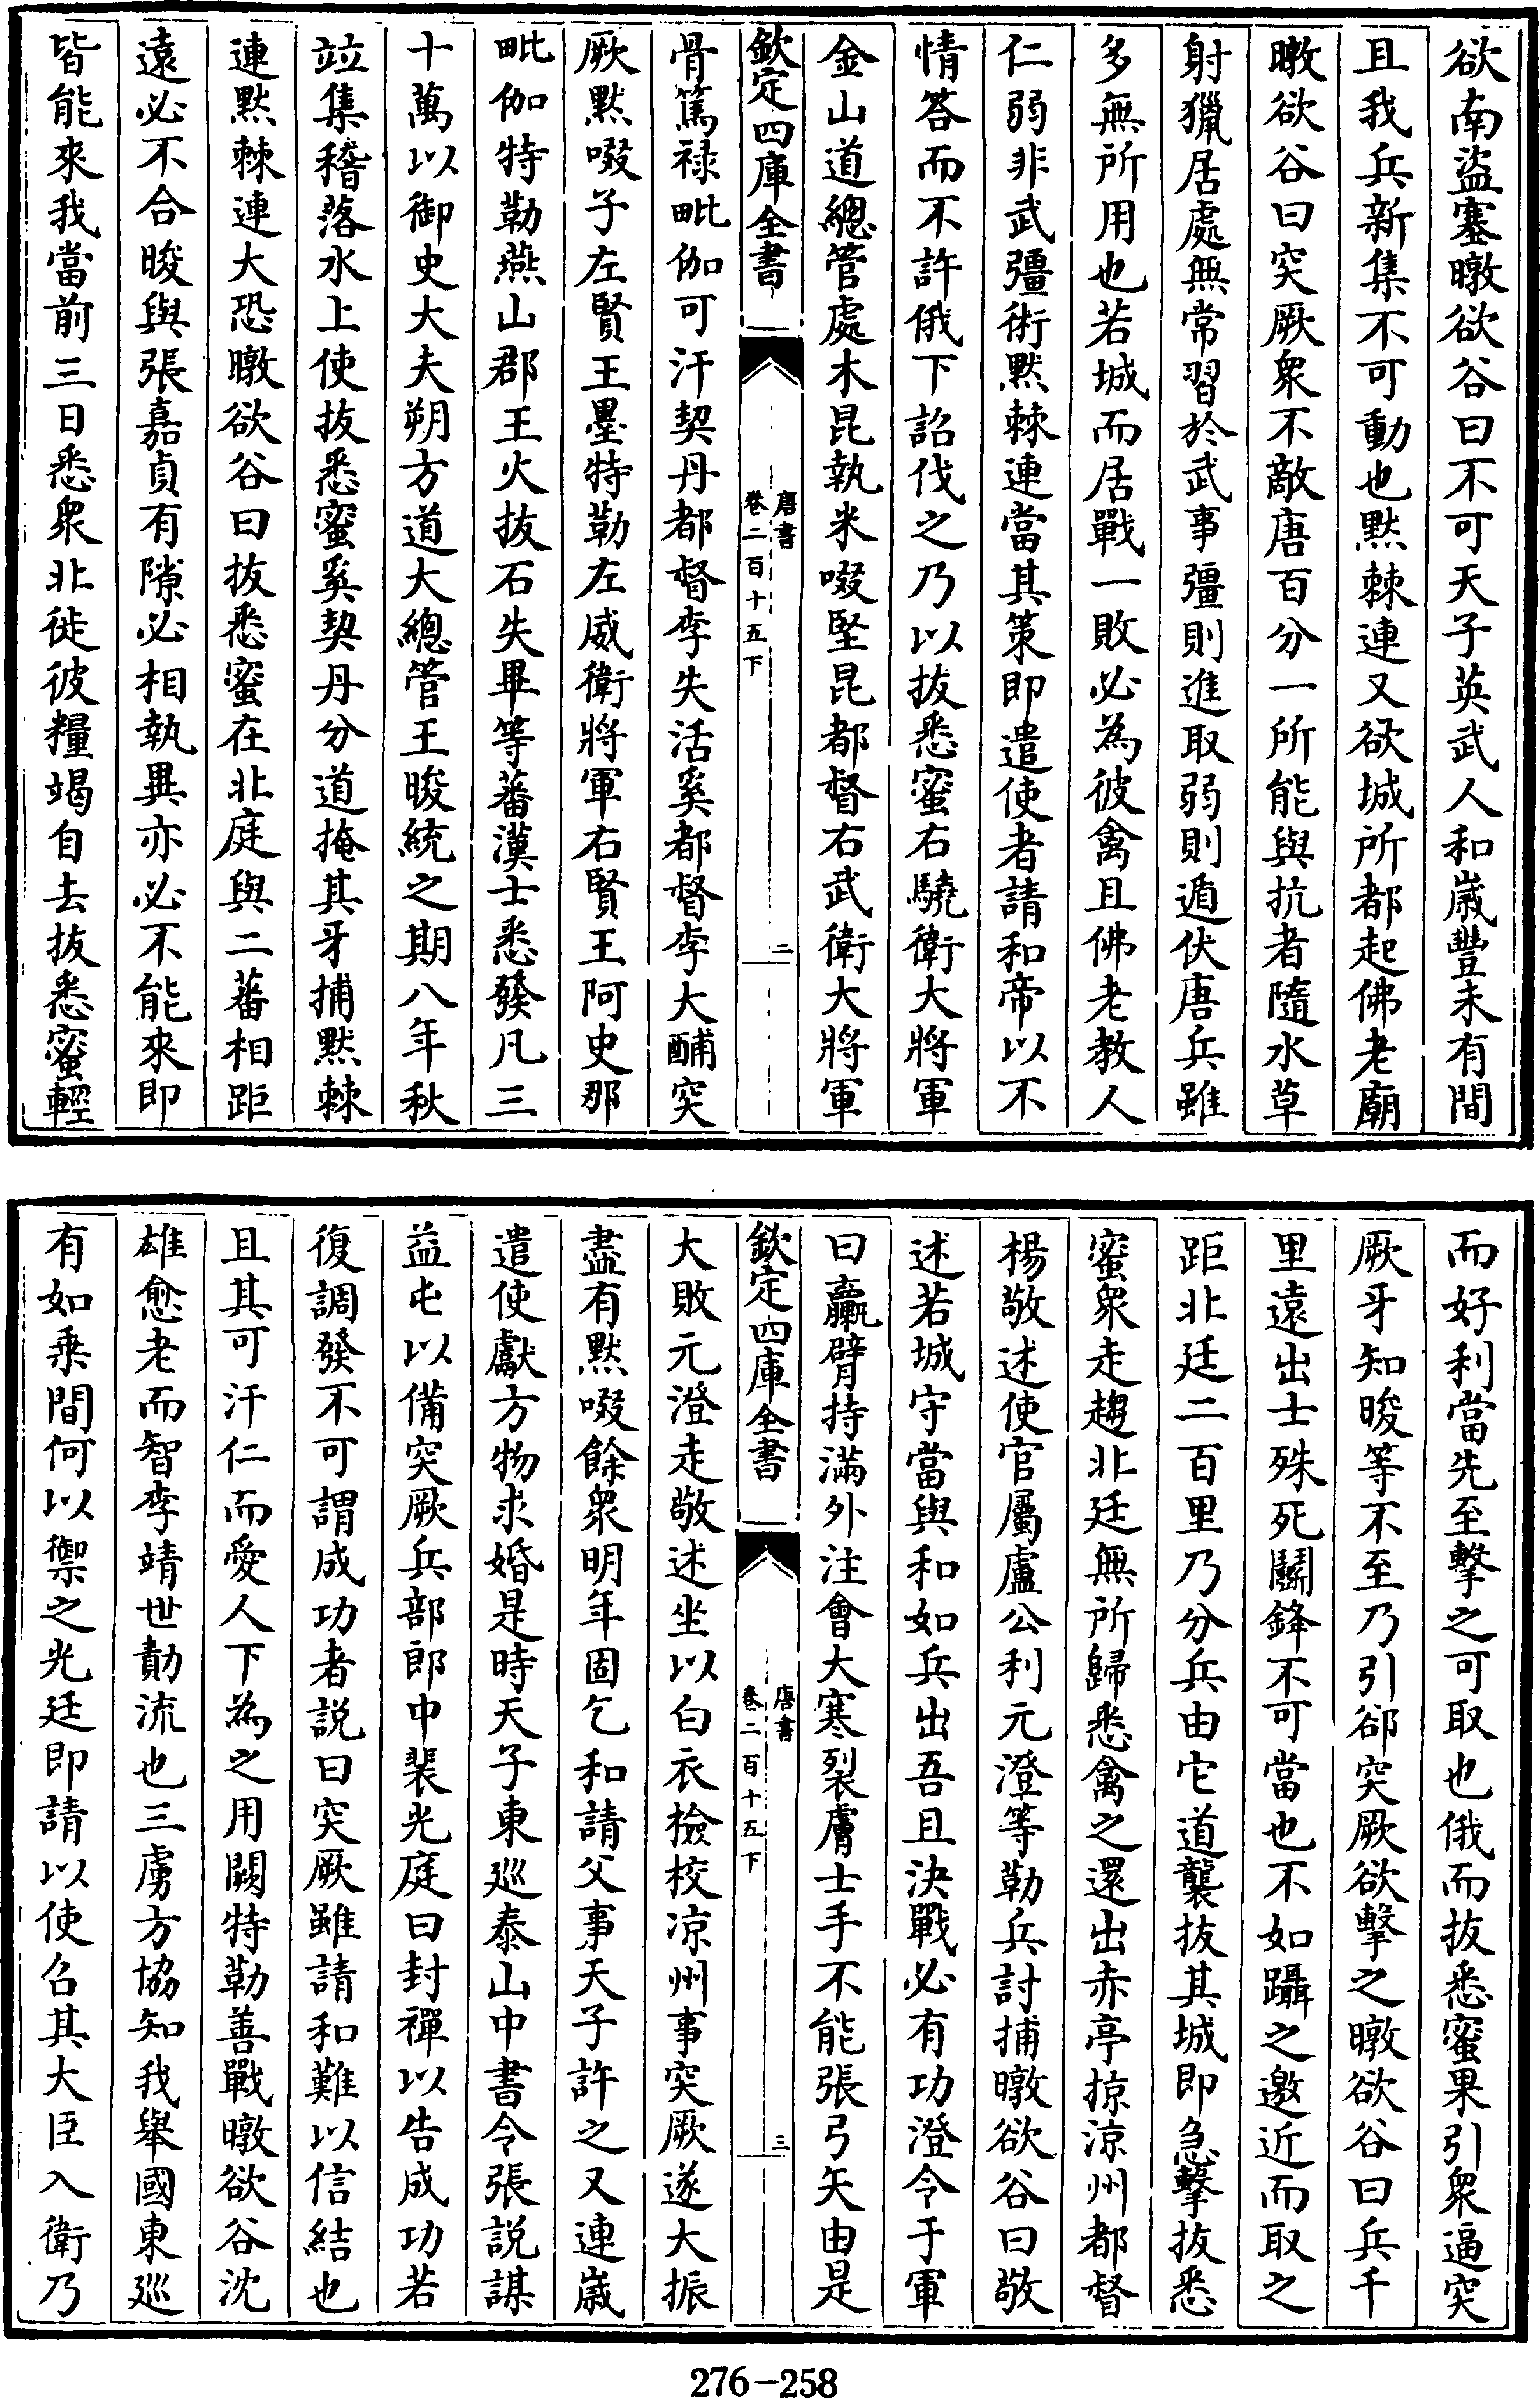 欲南盜塞暾欲谷曰不可天子英武人和歲豐未有間
且我兵新集不可動也默棘連又欲城所都起佛老廟
暾欲谷曰突厥衆不敵唐百分一所能與抗者隨水草
射獵居處無常習於武事彊則進取弱則遁伏唐兵雖
多無所用也若城而居戰一敗必為彼禽且佛老教人
仁弱非武彊術默棘連當其策即遣使者請和帝以不
情答而不許俄下詔伐之乃以拔悉蜜右驍衛大將軍
金山道總管處木昆執米啜堅昆都督右武衛大將軍
欽定四庫全書
唐書
卷二百十五下
二
骨篤禄毗伽可汗契丹都督李失活奚都督李大酺突
厥默啜子左賢王墨特勒左威衛將軍右賢王阿史那
毗伽特勒燕山郡王火拔石失畢等蕃漢士悉發凡三
十萬以御史大夫朔方道大總管王晙統之期八年秋
竝集稽落水上使拔悉蜜奚契丹分道掩其牙捕默棘
連默棘連大恐暾欲谷曰拔悉蜜在北庭與二蕃相距
遠必不合晙與張嘉貞有隙必相執異亦必不能來即
皆能來我當前三日悉衆北徙彼糧竭自去拔悉蜜輕
而好利當先至擊之可取也俄而拔悉蜜果引衆逼突
厥牙知晙等不至乃引郤突厥欲擊之暾欲谷曰兵千
里遠出士殊死鬭鋒不可當也不如躡之邀近而取之
距北廷二百里乃分兵由它道襲拔其城即急擊拔悉
蜜衆走趨北廷無所歸悉禽之還出赤亭掠涼州都督
楊敬述使官屬盧公利元澄等勒兵討捕暾欲谷曰敬
述若城守當與和如兵出吾且決戰必有功澄令于軍
曰臝臂持滿外注會大寒裂膚士手不能張弓矢由是
欽定四庫全書
唐書
卷二百十五下
三
大敗元澄走敬述坐以白衣檢校凉州事突厥遂大振
盡有默啜餘衆明年固乞和請父事天子許之又連歲
遣使獻方物求婚是時天子東巡泰山中書令張說謀
益屯以備突厥兵部郎中裴光庭曰封禪以告成功若
復調發不可謂成功者説曰突厥雖請和難以信結也
且其可汗仁而愛人下為之用闕特勒善戰暾欲谷沈
雄愈老而智李靖世勣流也三虜方協知我舉國東巡
有如乗間何以禦之光廷即請以使召其大臣入衛乃
276-258